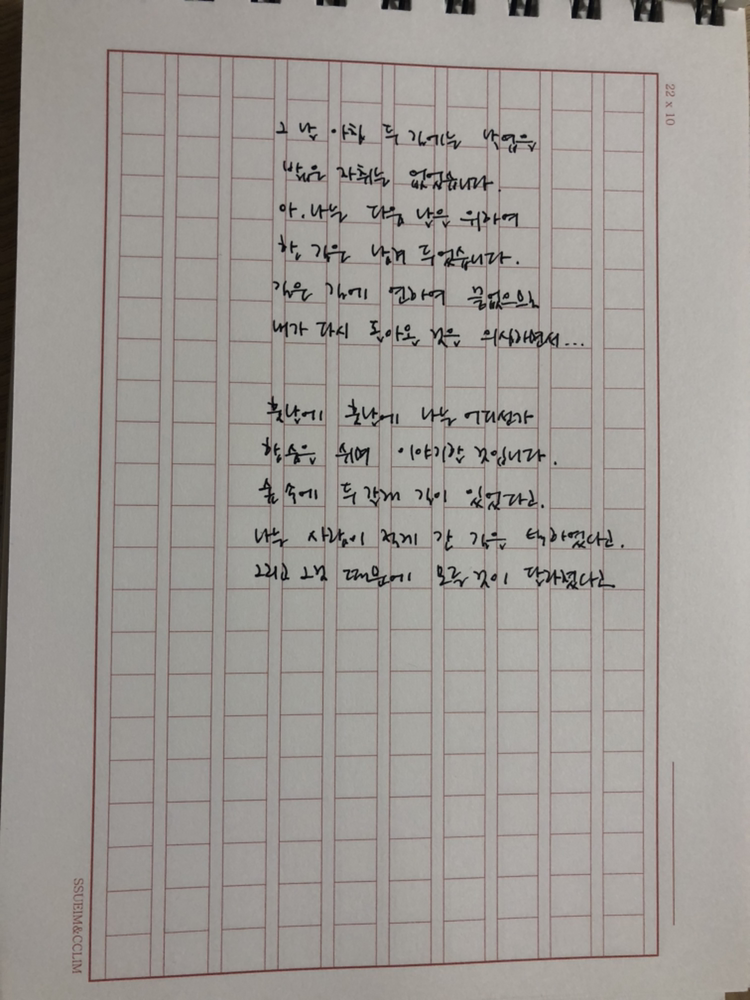 22 x 10
그 날 아침 두 길에는 낙엽을
밟은 자취는 없었습니다.
아, 나는 다음 날을 위하여
한 길은 남겨 두었습니다.
길은 길에 연하여 끝없으므로
내가 다시 돌아올 것을 의심하면서...
훗날에 훗날에 나는 어디선가
한숨을 쉬며 이야기할 것입니다.
숲 속에 두 갈래 길이 있었다고.
나는 사람이 적게 간 길을 택하였다고.
그리고 그것 때문에 모든 것이 달라졌다고
SSUEIM&CCLIM